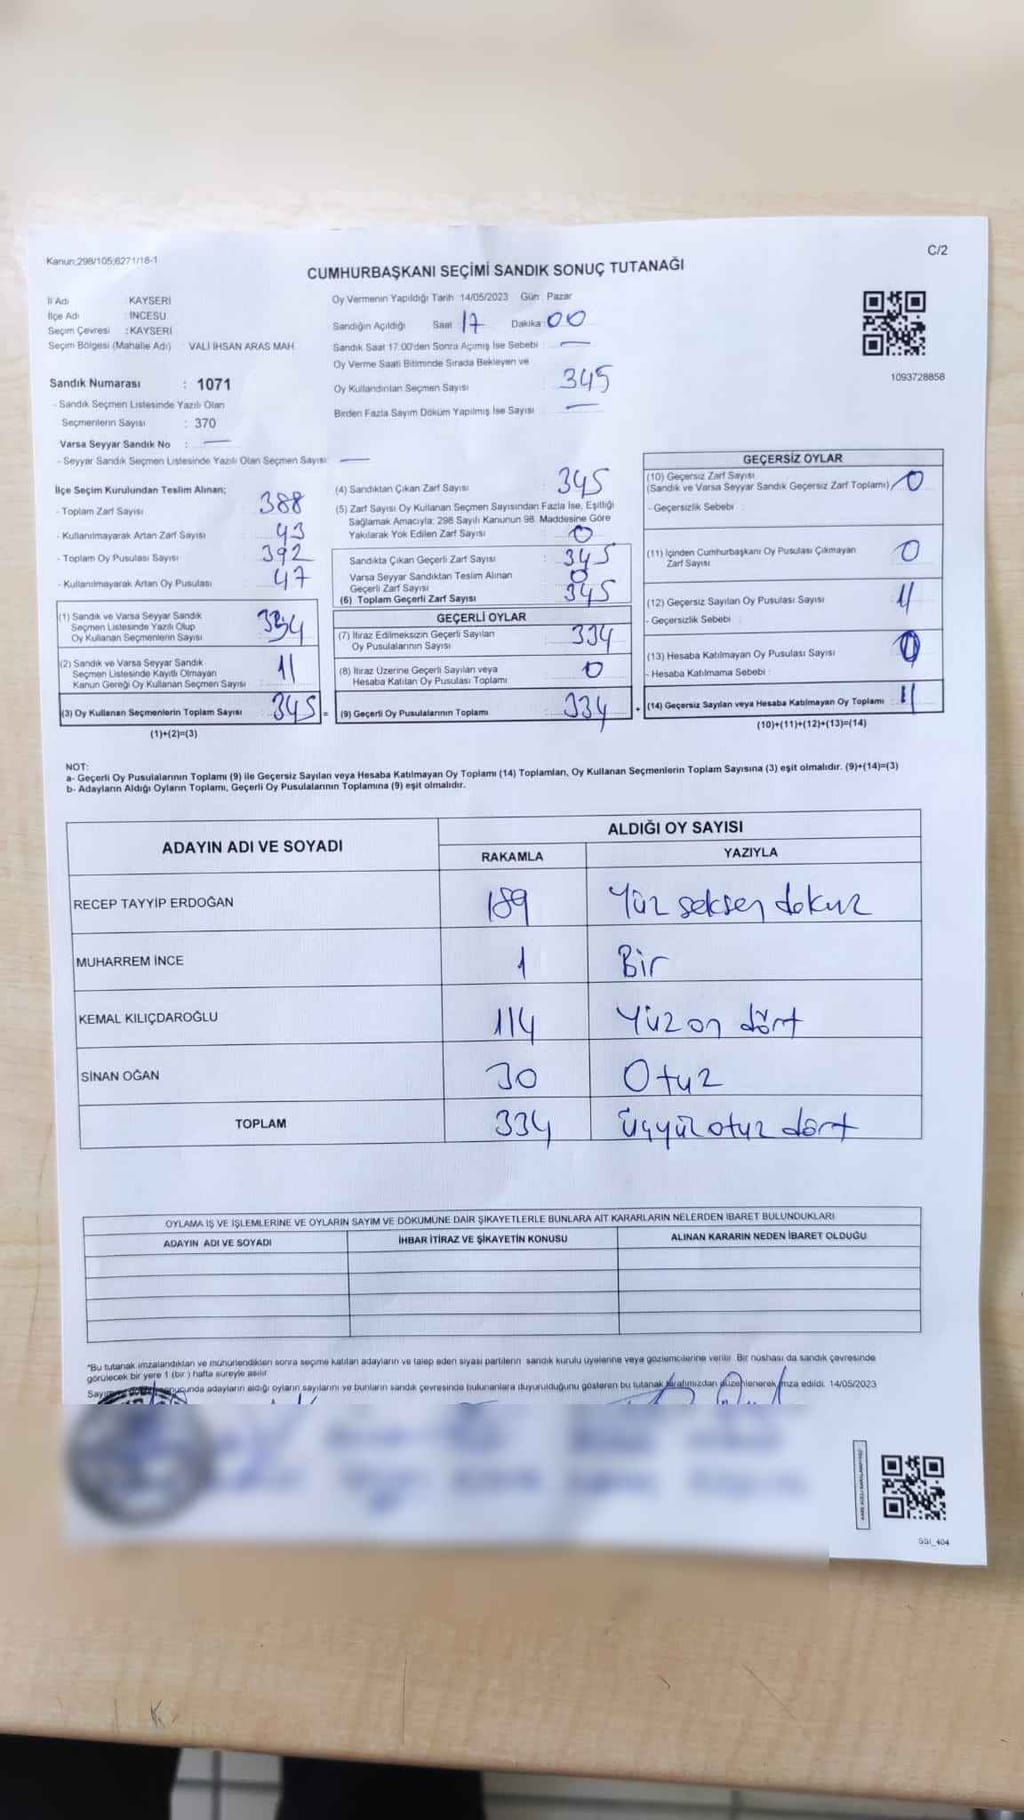 Kanun:298/105;6271/18-1
C/2
CUMHURBAŞKANI SEÇİMİ SANDIK SONUÇ TUTANAĞI
İl Adı KAYSERİ
İlçe Adı : İNCESU
Seçim Çevresi : KAYSERİ
Seçim Bölgesi (Mahalle Adı) VALİ İHSAN ARAS MAH
Sandık Numarası : 1071
- Sandık Seçmen Listesinde Yazılı Olan
Seçmenlerin Sayısı : 370
Varsa Seyyar Sandık No : —
- Seyyar Sandık Seçmen Listesinde Yazılı Olan Seçmen Sayısı: —
Oy Vermenin Yapıldığı Tarih :14/05/2023 Gün: Pazar
Sandığın Açıldığı Saat 17 Dakika: 00
Sandık Saat 17:00'den Sonra Açılmış İse Sebebi : —
Oy Verme Saati Bitiminde Sırada Bekleyen ve
Oy Kullandırılan Seçmen Sayısı : 345
Birden Fazla Sayım Döküm Yapılmış İse Sayısı : —
1093728858
İlçe Seçim Kurulundan Teslim Alınan;
- Toplam Zarf Sayısı : 388
- Kullanılmayarak Artan Zarf Sayısı : 43
- Toplam Oy Pusulası Sayısı : 392
- Kullanılmayarak Artan Oy Pusulası : 47
(1) Sandık ve Varsa Seyyar Sandık
Seçmen Listesinde Yazılı Olup
Oy Kullanan Seçmenlerin Sayısı : 334
(2) Sandık ve Varsa Seyyar Sandık
Seçmen Listesinde Kayıtlı Olmayan
Kanun Gereği Oy Kullanan Seçmen Sayısı : 11
(3) Oy Kullanan Seçmenlerin Toplam Sayısı : 345 =
(1)+(2)=(3)
(4) Sandıktan Çıkan Zarf Sayısı : 345
(5) Zarf Sayısı Oy Kullanan Seçmen Sayısından Fazla İse, Eşitliği
Sağlamak Amacıyla; 298 Sayılı Kanunun 98. Maddesine Göre
Yakılarak Yok Edilen Zarf Sayısı : 0
Sandıkta Çıkan Geçerli Zarf Sayısı : 345
Varsa Seyyar Sandıktan Teslim Alınan
Geçerli Zarf Sayısı : 0
(6) Toplam Geçerli Zarf Sayısı : 345
GEÇERLİ OYLAR
(7) İtiraz Edilmeksizin Geçerli Sayılan
Oy Pusulalarının Sayısı : 334
(8) İtiraz Üzerine Geçerli Sayılan veya
Hesaba Katılan Oy Pusulası Toplamı : 0
(9) Geçerli Oy Pusulalarının Toplamı : 334 +
GEÇERSİZ OYLAR
(10) Geçersiz Zarf Sayısı
(Sandık ve Varsa Seyyar Sandık Geçersiz Zarf Toplamı) : 0
- Geçersizlik Sebebi :
(11) İçinden Cumhurbaşkanı Oy Pusulası Çıkmayan
Zarf Sayısı : 0
(12) Geçersiz Sayılan Oy Pusulası Sayısı : 11
- Geçersizlik Sebebi :
(13) Hesaba Katılmayan Oy Pusulası Sayısı : 0
- Hesaba Katılmama Sebebi :
(14) Geçersiz Sayılan veya Hesaba Katılmayan Oy Toplamı : 11
(10)+(11)+(12)+(13)=(14)
NOT:
a- Geçerli Oy Pusulalarının Toplamı (9) ile Geçersiz Sayılan veya Hesaba Katılmayan Oy Toplamı (14) Toplamları, Oy Kullanan Seçmenlerin Toplam Sayısına (3) eşit olmalıdır. (9)+(14)=(3)
b- Adayların Aldığı Oyların Toplamı, Geçerli Oy Pusulalarının Toplamına (9) eşit olmalıdır.
ADAYIN ADI VE SOYADI ALDIĞI OY SAYISI
RAKAMLA YAZIYLA
RECEP TAYYİP ERDOĞAN 189 Yüz seksen dokuz
MUHARREM İNCE 1 Bir
KEMAL KILIÇDAROĞLU 114 Yüz on dört
SİNAN OĞAN 30 Otuz
TOPLAM 334 Üçyüz otuz dört
OYLAMA İŞ VE İŞLEMLERİNE VE OYLARIN SAYIM VE DÖKÜMÜNE DAİR ŞİKAYETLERLE BUNLARA AİT KARARLARIN NELERDEN İBARET BULUNDUKLARI
ADAYIN ADI VE SOYADI İHBAR İTİRAZ VE ŞİKAYETİN KONUSU ALINAN KARARIN NEDEN İBARET OLDUĞU
*Bu tutanak imzalandıktan ve mühürlendikten sonra seçime katılan adayların ve talep eden siyasi partilerin sandık kurulu üyelerine veya gözlemcilerine verilir. Bir nüshası da sandık çevresinde
görülecek bir yere 1 (bir) hafta süreyle asılır.
adayların aldığı oyların sayılarını ve bunların sandık çevresinde bulunanlara duyurulduğunu gösteren bu tutanak tarafımızdan düzenlenerek imza edildi. 14/05/2023